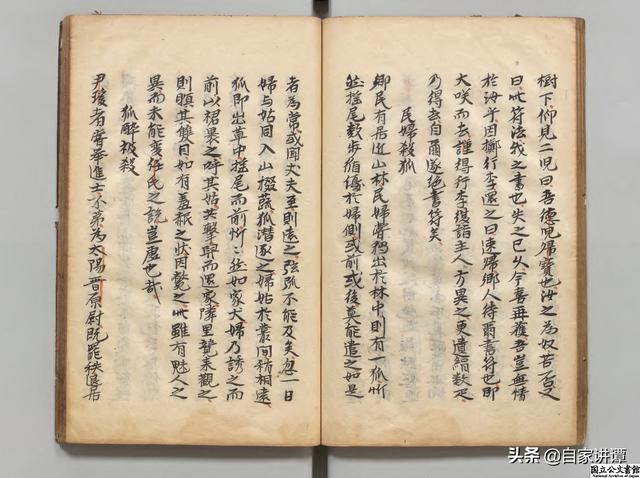 樹下仰見二兒曰吾德兒歸寶也汝之為奴苦否又
曰此符法我之書也失之已久今喜再獲吾豈無情
於汝乎因擲行李還之曰速歸鄉人待爾書符也即
大咲而去誰得行李復詣主人方異之更遺絹数疋
乃得去自爾遂絶書符矣
民婦殺狐
鄉民有居近山林民婦嘗獨出於林中則有一狐忻
然搖尾数步循擾於婦側或前或後莫能遣之如是
者為常或聞丈夫至則遠之弦弧不能及矣忽一日
婦与姑同入山掇蔬狐潛逐之婦姑於叢間稍相遠
狐即出草中搖尾而前忻々然如家犬婦乃誘之而
前以裙裹之呼其姑共擊舁而還家隣里競来觀之
則瞑其雙目如有羞赧之状因斃之此雖有魅人之
異而未能變任氏之說豈虚也哉
狐醉被殺
尹瑗者嘗舉進士不第為太陽晉原尉既罷秩退居
头条 @自家讲谭
国立公文書館
National Archives of Japan